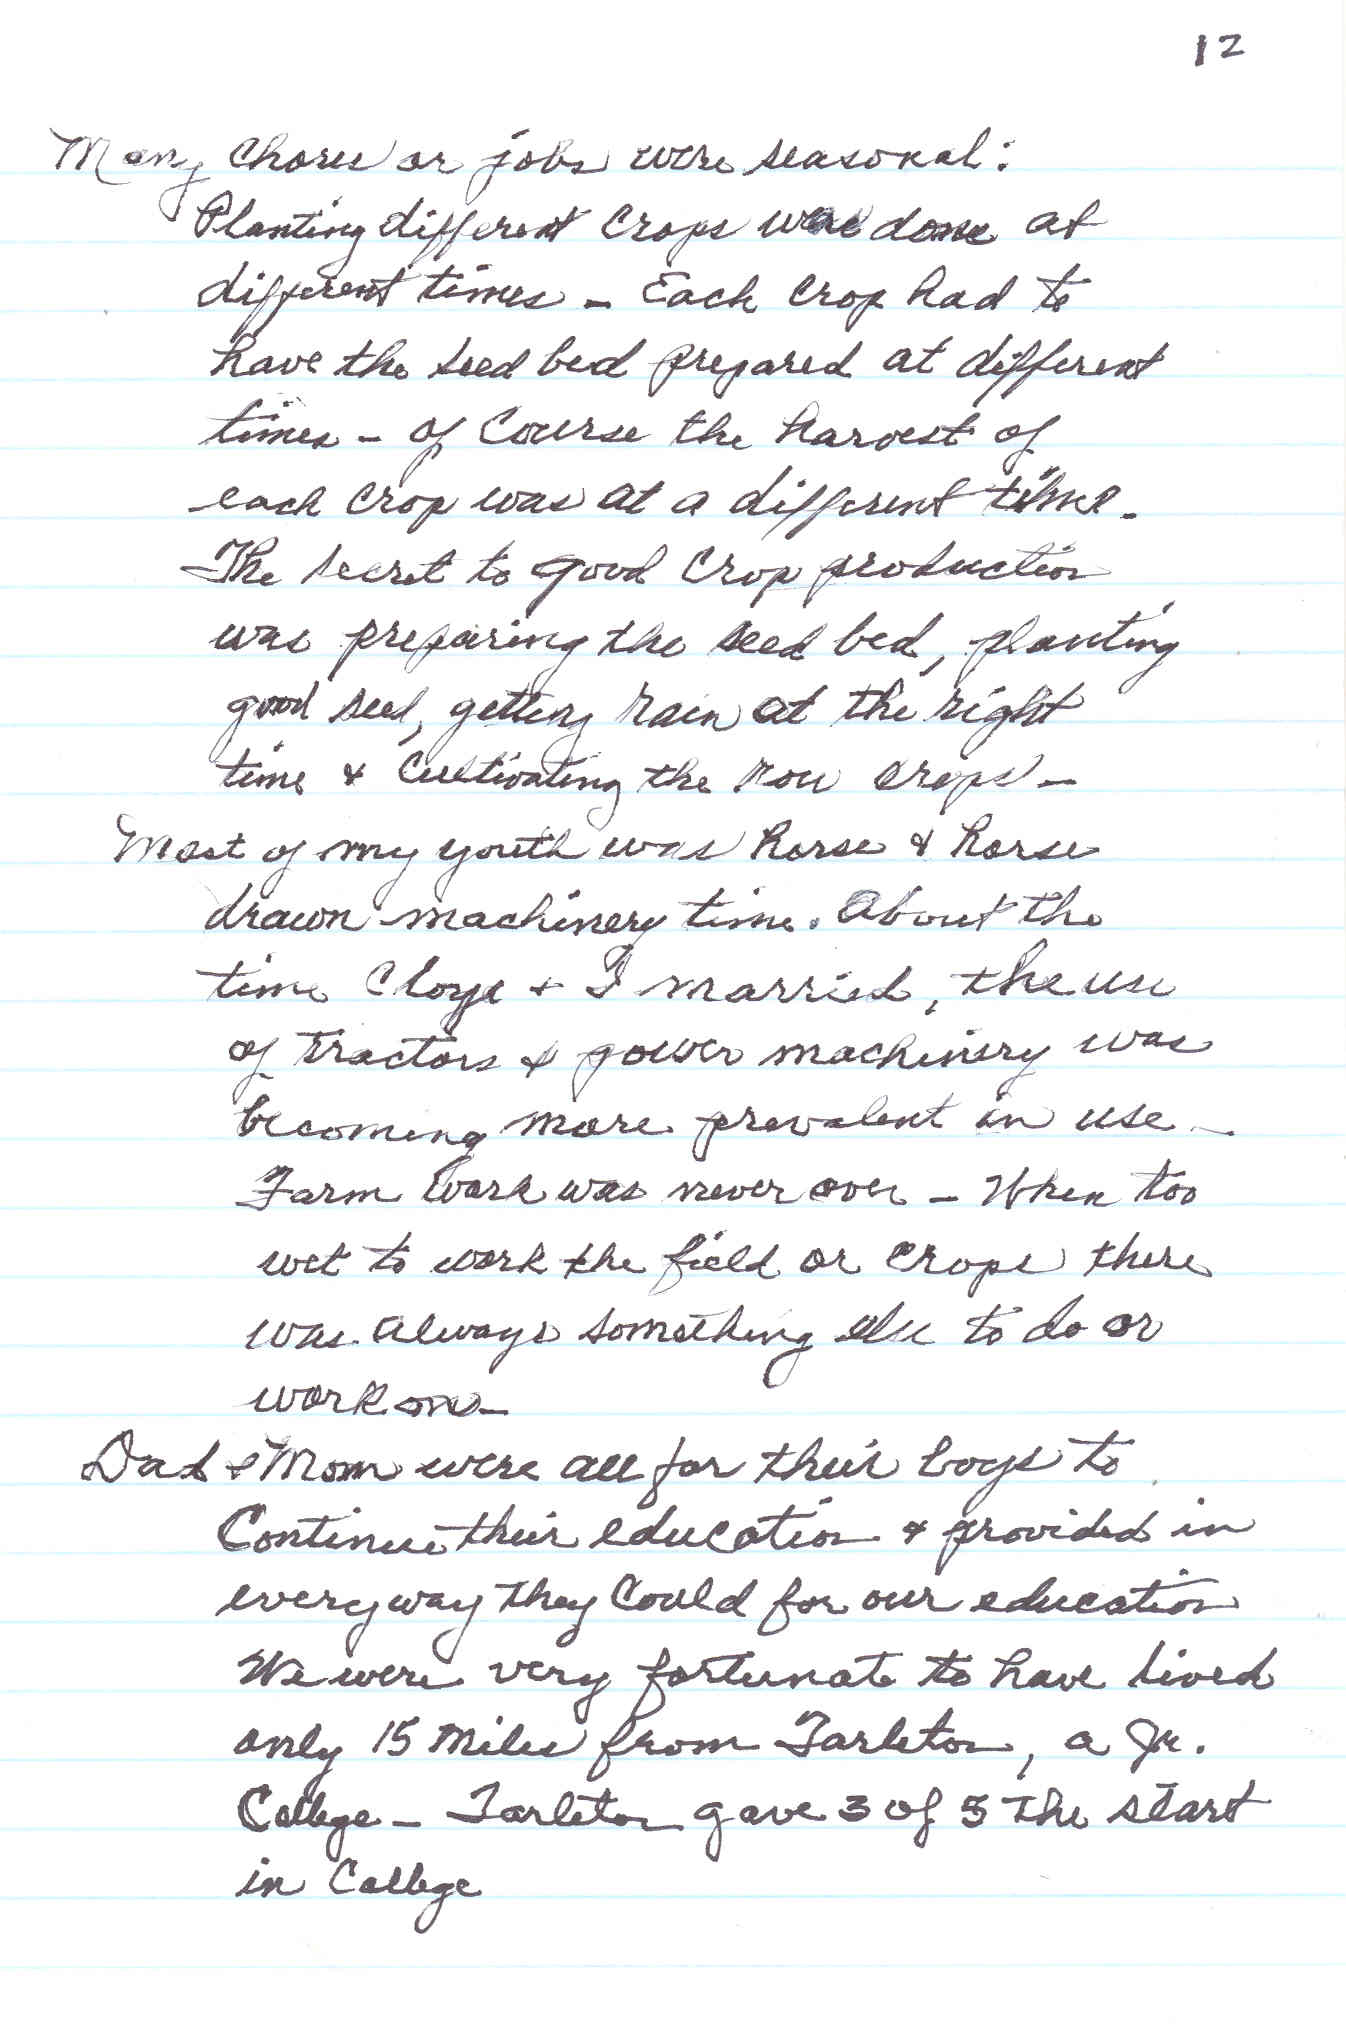 12
Many chores or jobs were seasonal:
Planting different crops were done at
different times - Each crop had to
have the seed bed prepared at different
times - of course the harvest of
each crop was at a different time -
The secret to good crop production
was preparing the seed bed, planting
good seed, getting rain at the right
time & cultivating the row crops -
Most of my youth was horse & horse
drawn machinery time. About the
time Cloye & I married, the use
of tractors & power machinery was
becoming more prevalent in use -
Farm work was never over - When too
wet to work the field or crops there
was always something else to do or
work on -
Dad & Mom were all for their boys to
Continue their education & provided in
every way they could for our education
We were very fortunate to have lived
only 15 miles from Tarleton, a Jr.
College - Tarleton gave 3 of 5 the start
in College